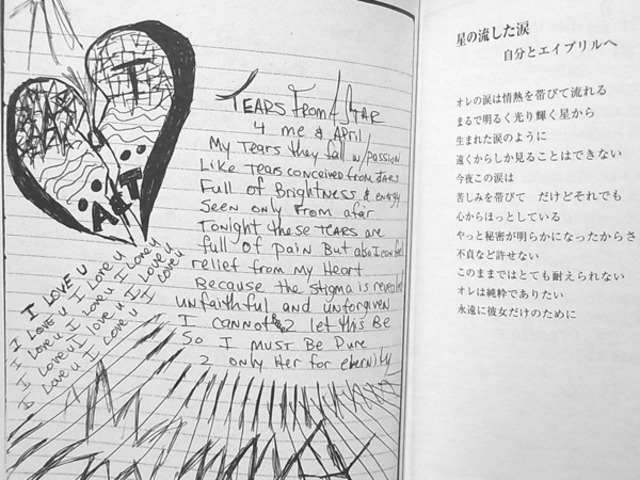 T
A+T
TEARS From A STAR
4 me & April
My Tears they fall w/passion
Like Tears conceived from STARS
Full of Brightness & energy
Seen only from afar
Tonight these TEARS are
full of pain But also I can feel
relief from My Heart
Because the stigma is revealed
unfaithful and unforgiven
I cannot 2 let this Be
So I MUST Be Pure
2 only Her for eternity
I LOVE U
I LOVE U I Love U
I Love U I Love U I Love U
I Love U I Love U I Love U
I Love U I Love U
星の流した涙
自分とエイプリルへ
オレの涙は情熱を帯びて流れる
まるで明るく光り輝く星から
生まれた涙のように
遠くからしか見ることはできない
今夜この涙は
苦しみを帯びて　だけどそれでも
心からほっとしている
やっと秘密が明らかになったからさ
不貞など許せない
このままではとても耐えられない
オレは純粋でありたい
永遠に彼女だけのために